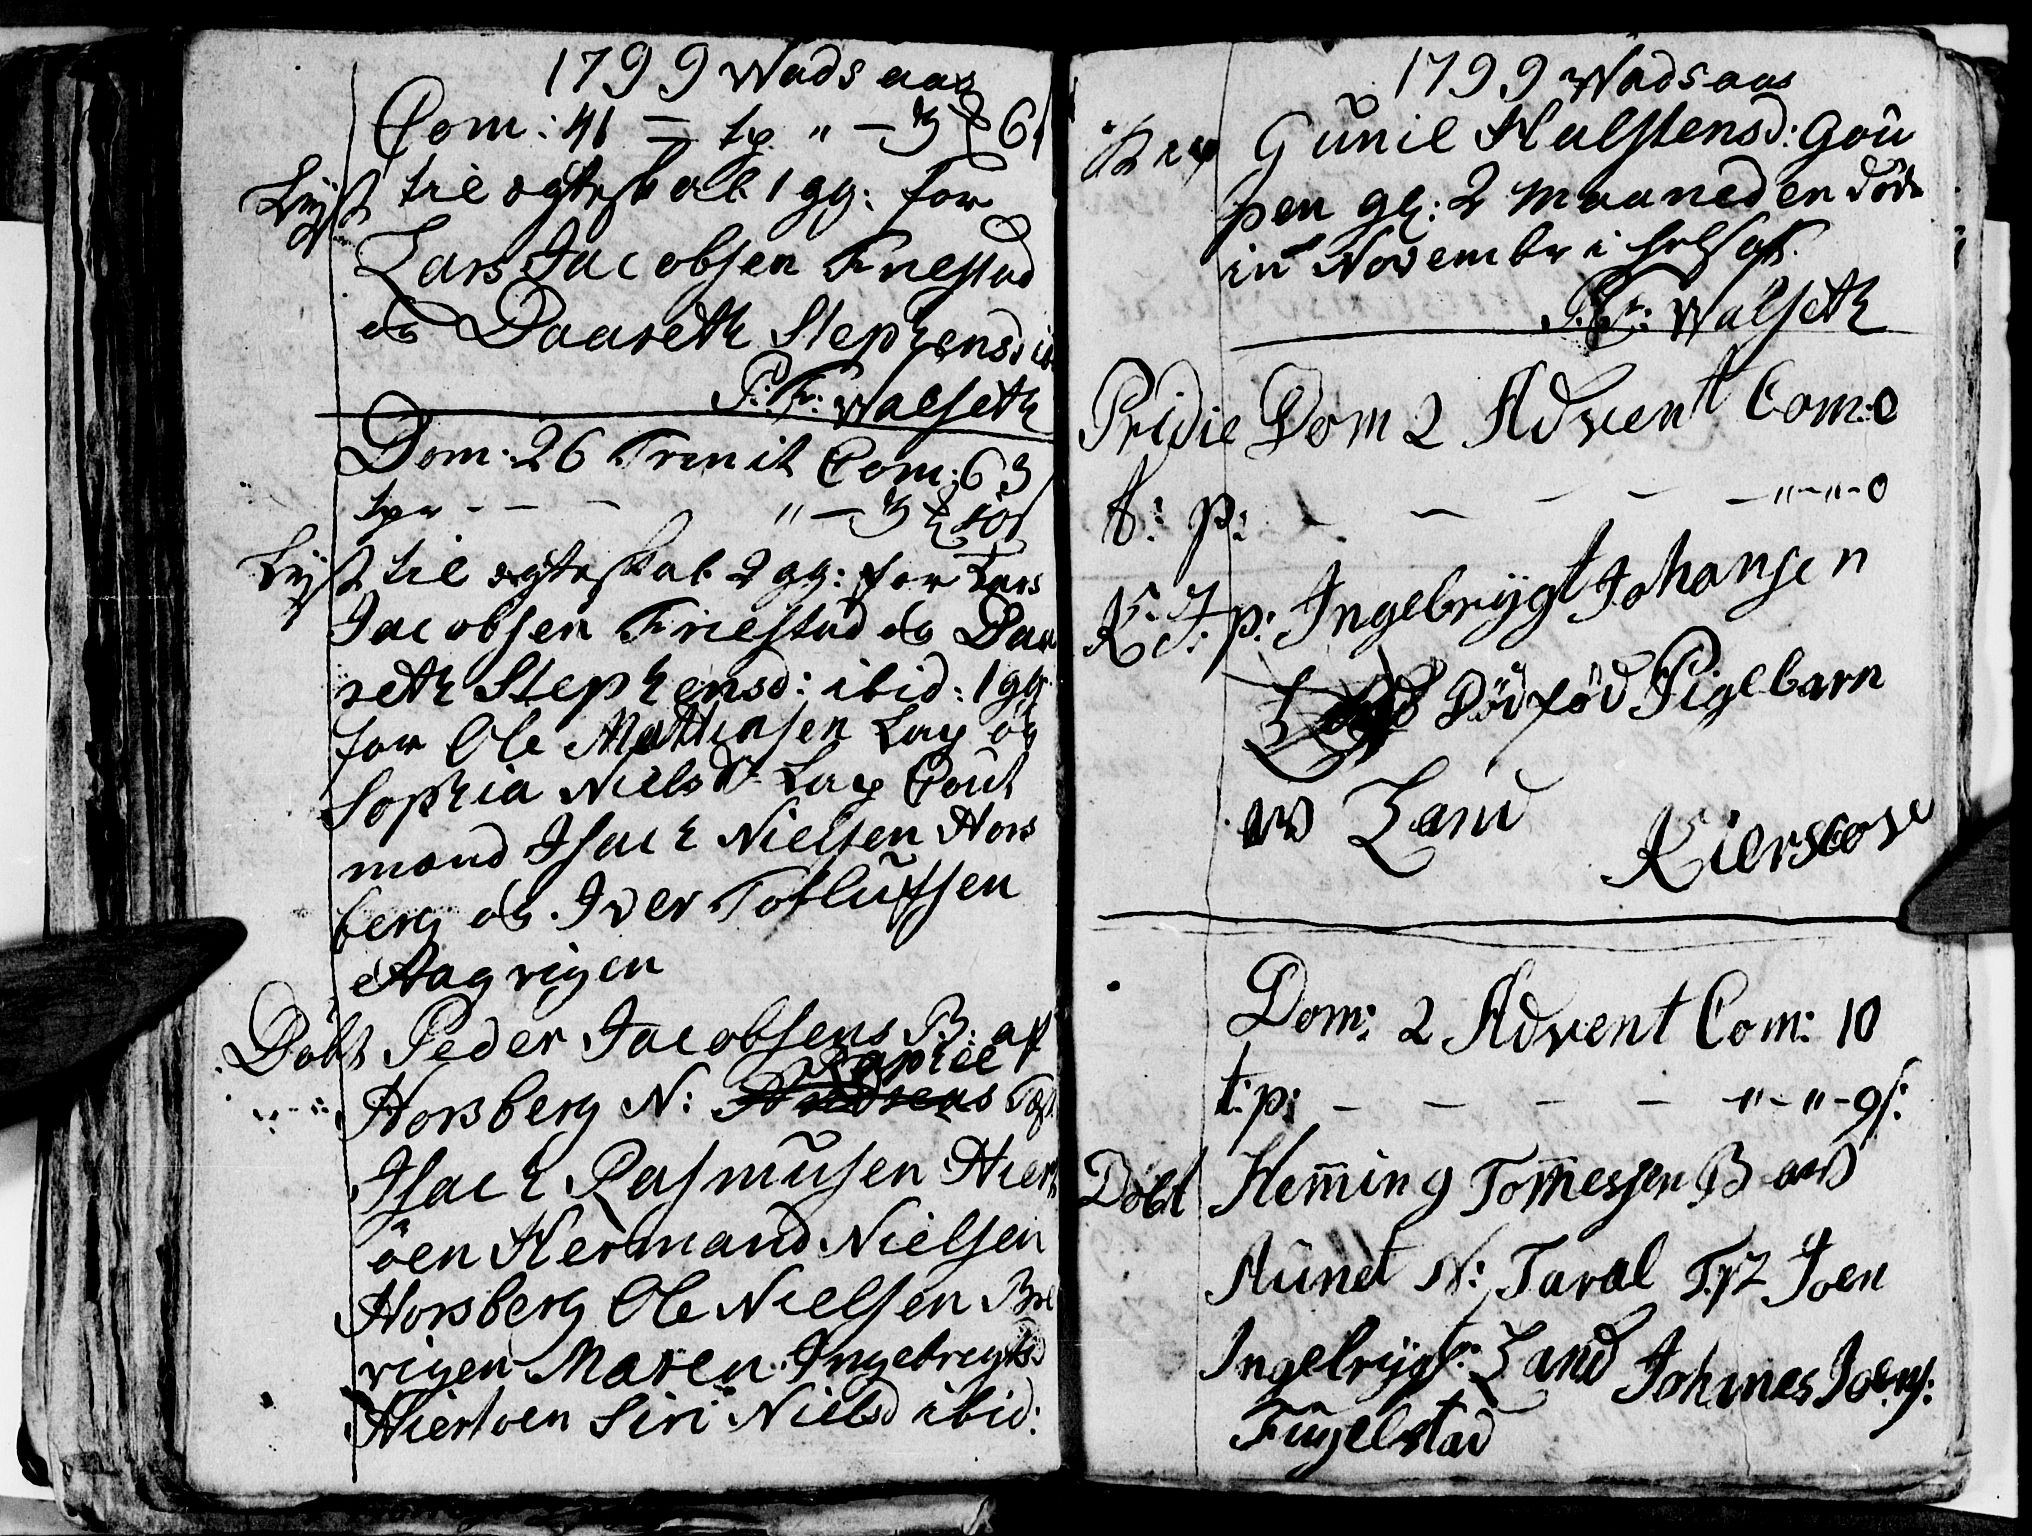 1799 Wadsaas
Com: 41 = tp " - 3 ℔ 61
Lyst til ægteskab 1 gg: for
Lars Jacobsen Friestad
og Daareth Stephensd: ib
P: Fr: Walseth
Dom: 26 Trinit Com: 63
tp - - - " - 3
Lyst til ægteskab 2 gg: for Lars
Jacobsen Friestad og Daa
reth Stephensd: ibid: 1 gg
for Ole Mattinsen Lap og
Sophia Nielsd Lap Cout
mand Isach Nielsen Hors
berg og Iver Tollufsen
Aagvigen
Døbt Peder Jacobsens B: af
Daniel
Horsberg N: Andreas
Isach Rasmusen Hiert
øen Hermand Nielsen
Horsberg Ole Nielsen Bre
vigen Maren Ingebregtsd
Hiertøen Siri Nielsd ibid:
1799 Wadsaas
Gunil Halstensd: Gou
pen gl: 2 Maaneder døde
in Novembr i
P: Fr: Walseth
Pridie Dom 2 Advent Com: 0
t: p: - - - - - " - " - 0
K: J: p: Ingebrygt Johansen
Dødfød Pigebarn
Zand
Kierscose
Dom: 2 Advent Com: 10
t: p: - - - - " - " - 9 s:
Døbt Hem̄ing Tom̄essen B
Aunet N: Taral T: Joen
Ingebrygts: Zand Johanes Joens:
Fugelstad